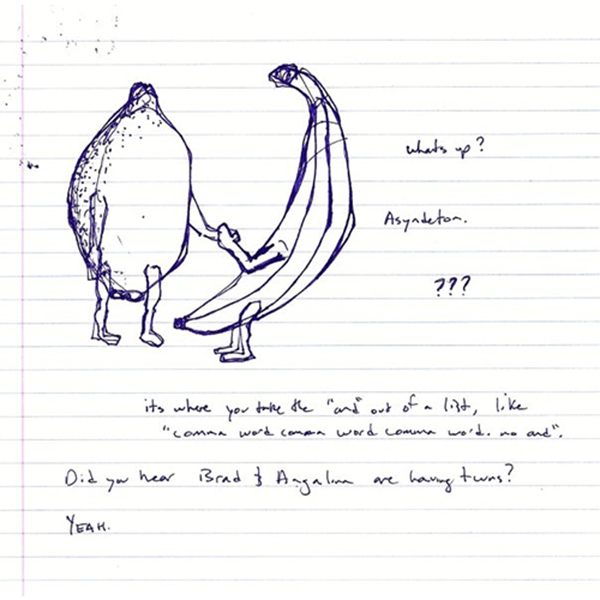 whats up?
Asyndeton.
???
its where you take the "and" out of a list, like
"comma word comma word comma word. no and".
Did you hear Brad & Angalina are having twins?
YEAH.